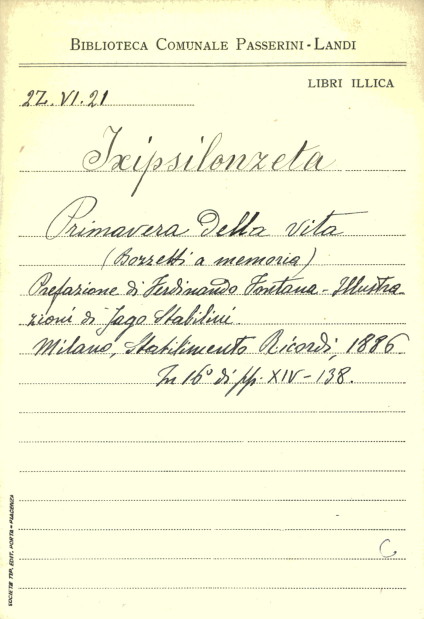 BIBLIOTECA COMUNALE PASSERINI-LANDI
LIBRI ILLICA
2Z.VI.21
Ixipsilonzeta
Primavera della vita
(Bozzetti a memoria)
Prefazione di Ferdinando Fontana - Illustra-
zioni di Jago Stabilini
Milano, Stabilimento Ricordi, 1886
In 16° di pp. XIV-138.
C
SOCIETÀ TIP. EDIT. PORTA - PIACENZA